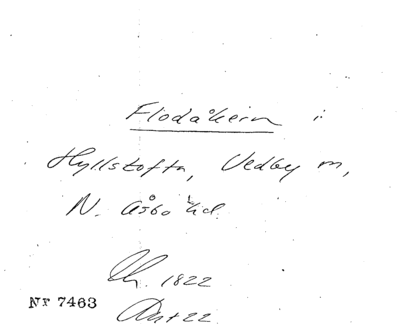 Flodåkern i
Hyllstofta, Vedby m,
N. Åsbo hd.
1822
Nr 7463
22